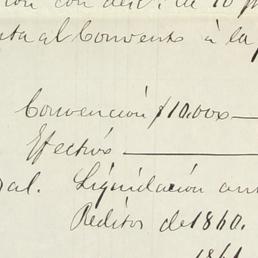 con desc. de 10
al Convento à la
Convención $10.000
Efectivo
al. Liquidación
Reditos de 1860.
1861